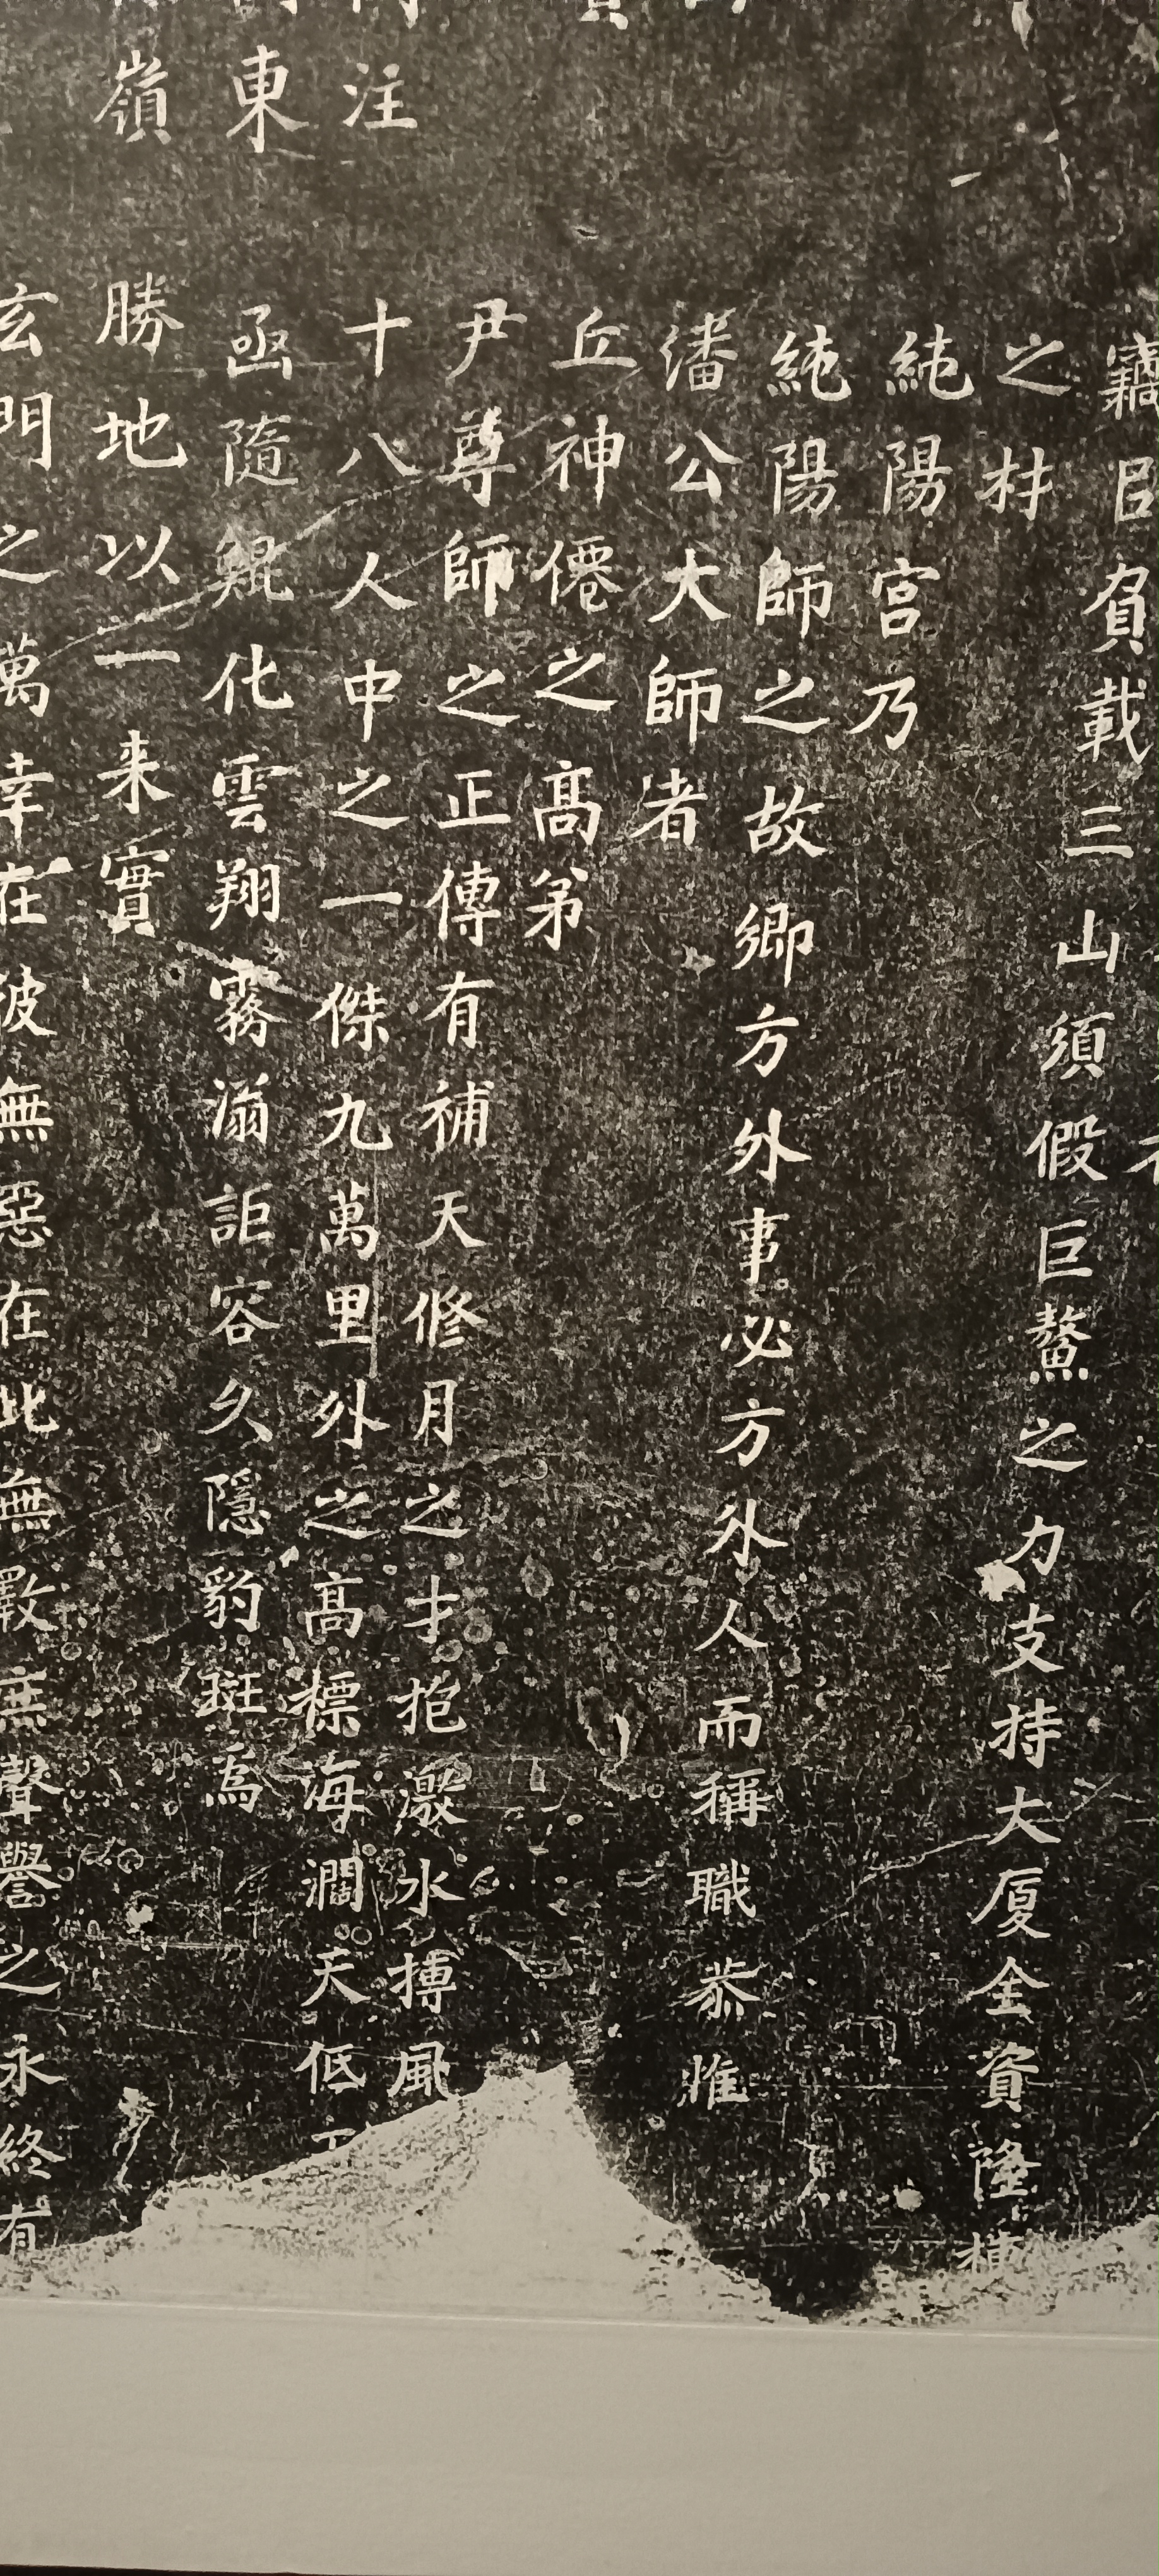 竊目負載三山須假巨鼇之力支持大厦全資隆
之材
純陽宮乃
純陽師之故鄉方外事必方外人而稱職恭惟
潘公大師者
丘神僊之高弟
尹尊師之正傳有補天修月之才抱激水摶風
注 十八人中之一傑九萬里外之高標海濶天低
東 函隨鯤化雲翔霧滃詎容久隱豹斑烏
嶺 勝地以一来實
玄門之萬幸在彼無惡在此無斁庶聲譽之永終有